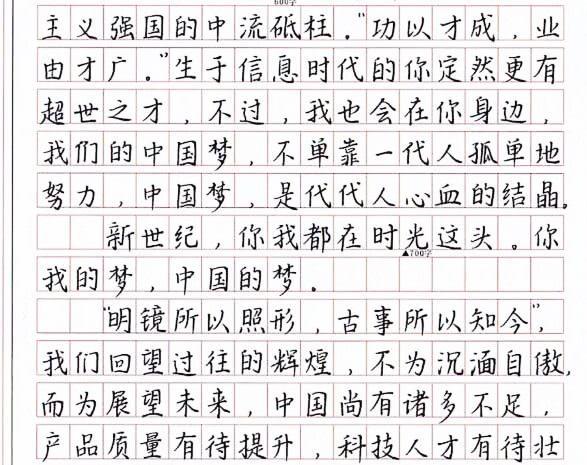 600字
主义强国的中流砥柱。"功以才成，业
由才广。"生于信息时代的你定然更有
超世之才，不过，我也会在你身边，
我们的中国梦，不单靠一代人孤单地
努力，中国梦，是代代人心血的结晶。
新世纪，你我都在时光这头。你
▲700字
我的梦，中国的梦。
"明镜所以照形，古事所以知今"，
我们回望过往的辉煌，不为沉湎自傲，
而为展望未来，中国尚有诸多不足，
产品质量有待提升，科技人才有待壮